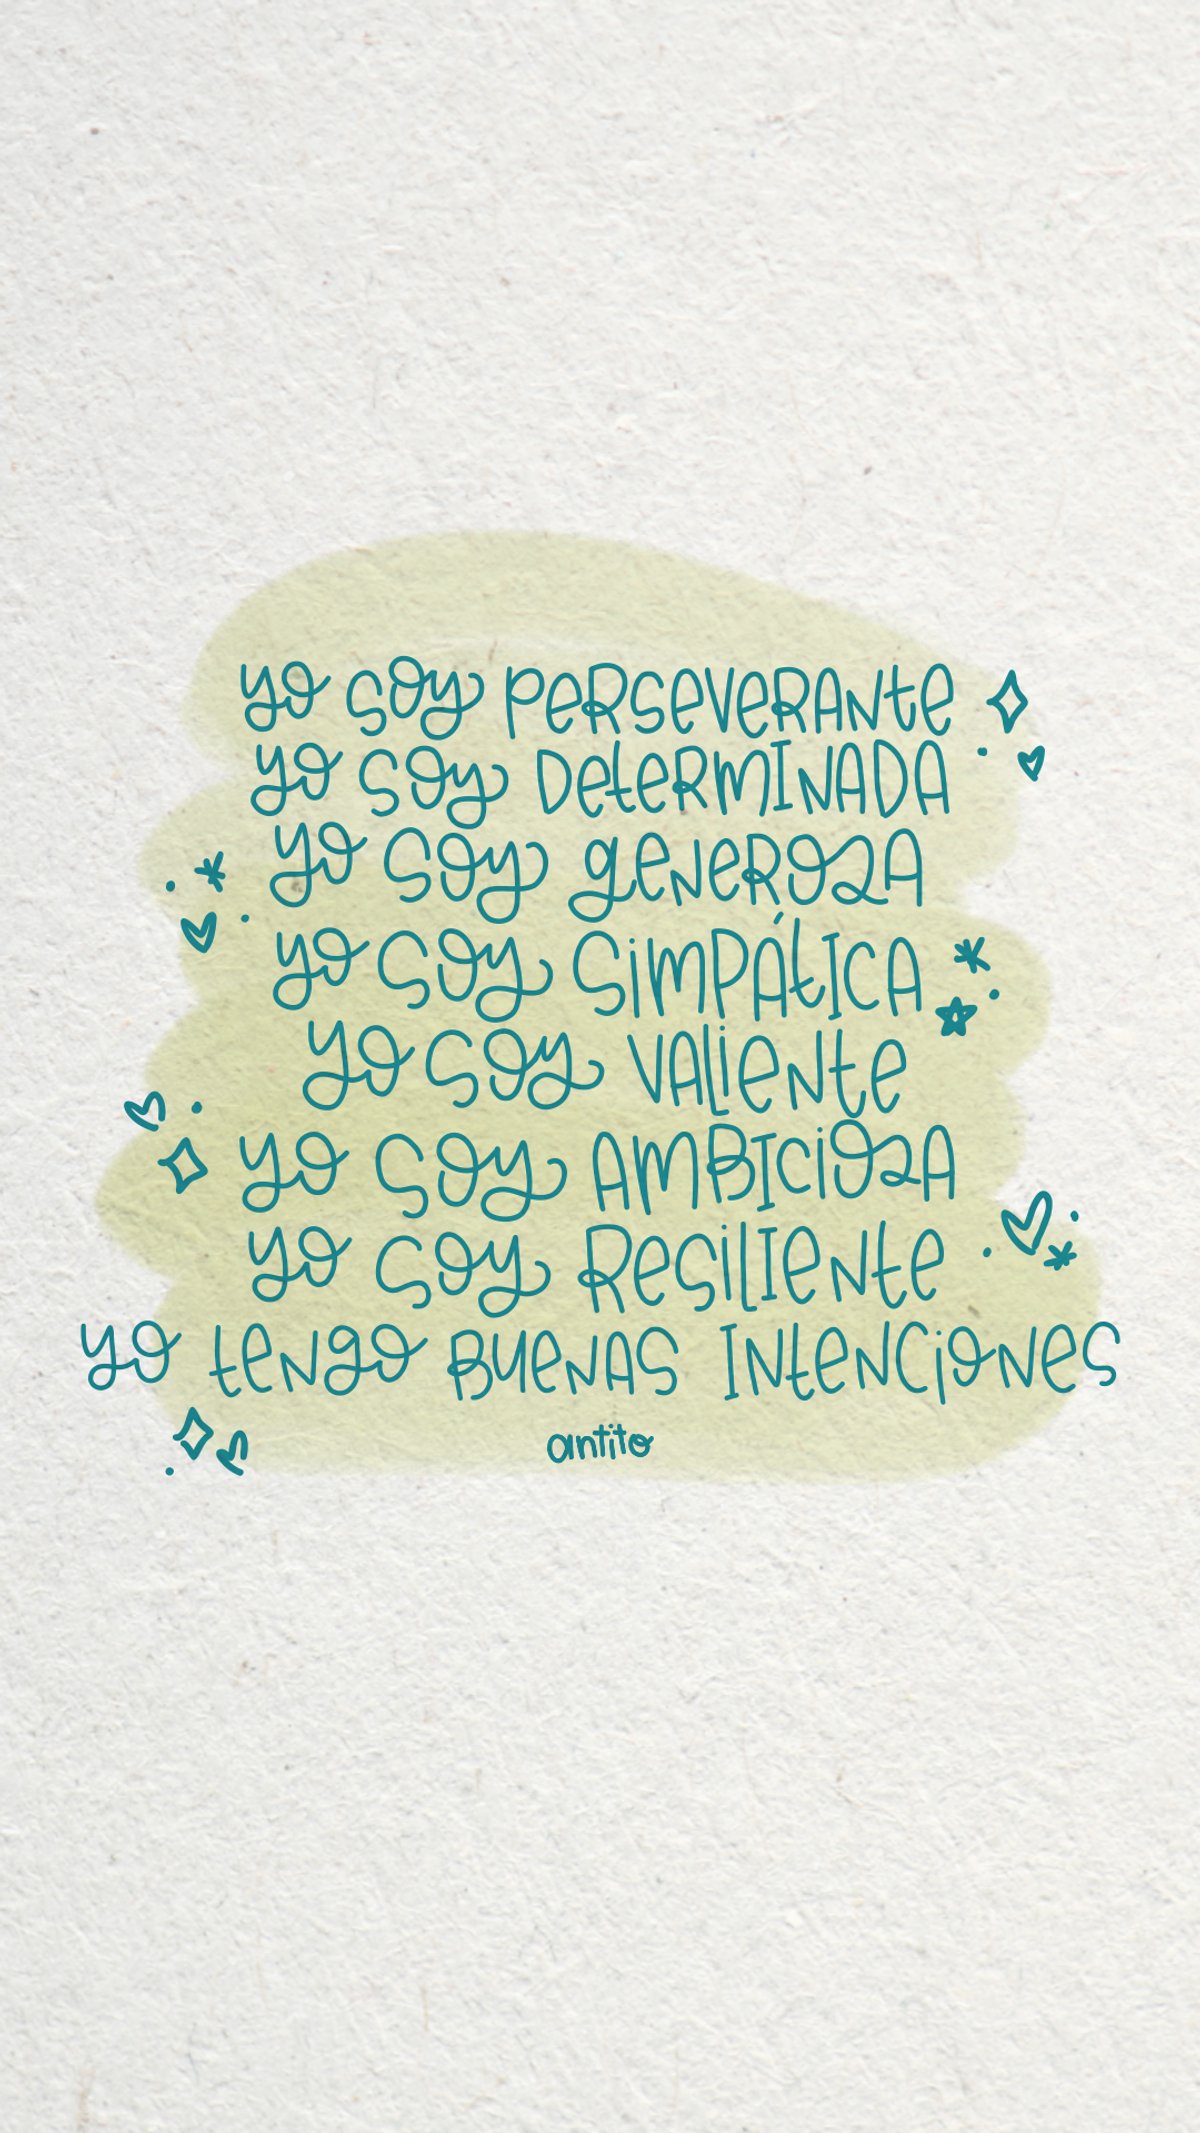 yo soy perseverante
yo soy determinada
yo soy generosa
yo soy simpática
yo soy valiente
yo soy ambiciosa
yo soy resiliente
yo tengo buenas intenciones
antito